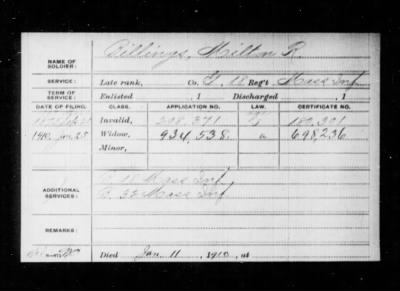 Billings, Milton R.
NAME OF
SOLDIER:
SERVICE: Late rank, Co. G, 18 Reg't Mass Inf.
TERM OF
SERVICE: Enlisted , 1 Discharged , 1
DATE OF FILING. CLASS. APPLICATION NO. LAW. CERTIFICATE NO.
Invalid, 371
1910, Jan. 25 Widow, 934,538 a 698,236
Minor,
ADDITIONAL
SERVICES:
18 Mass Inf
32 Mass Inf
REMARKS:
Died Jan. 11, 1910, at